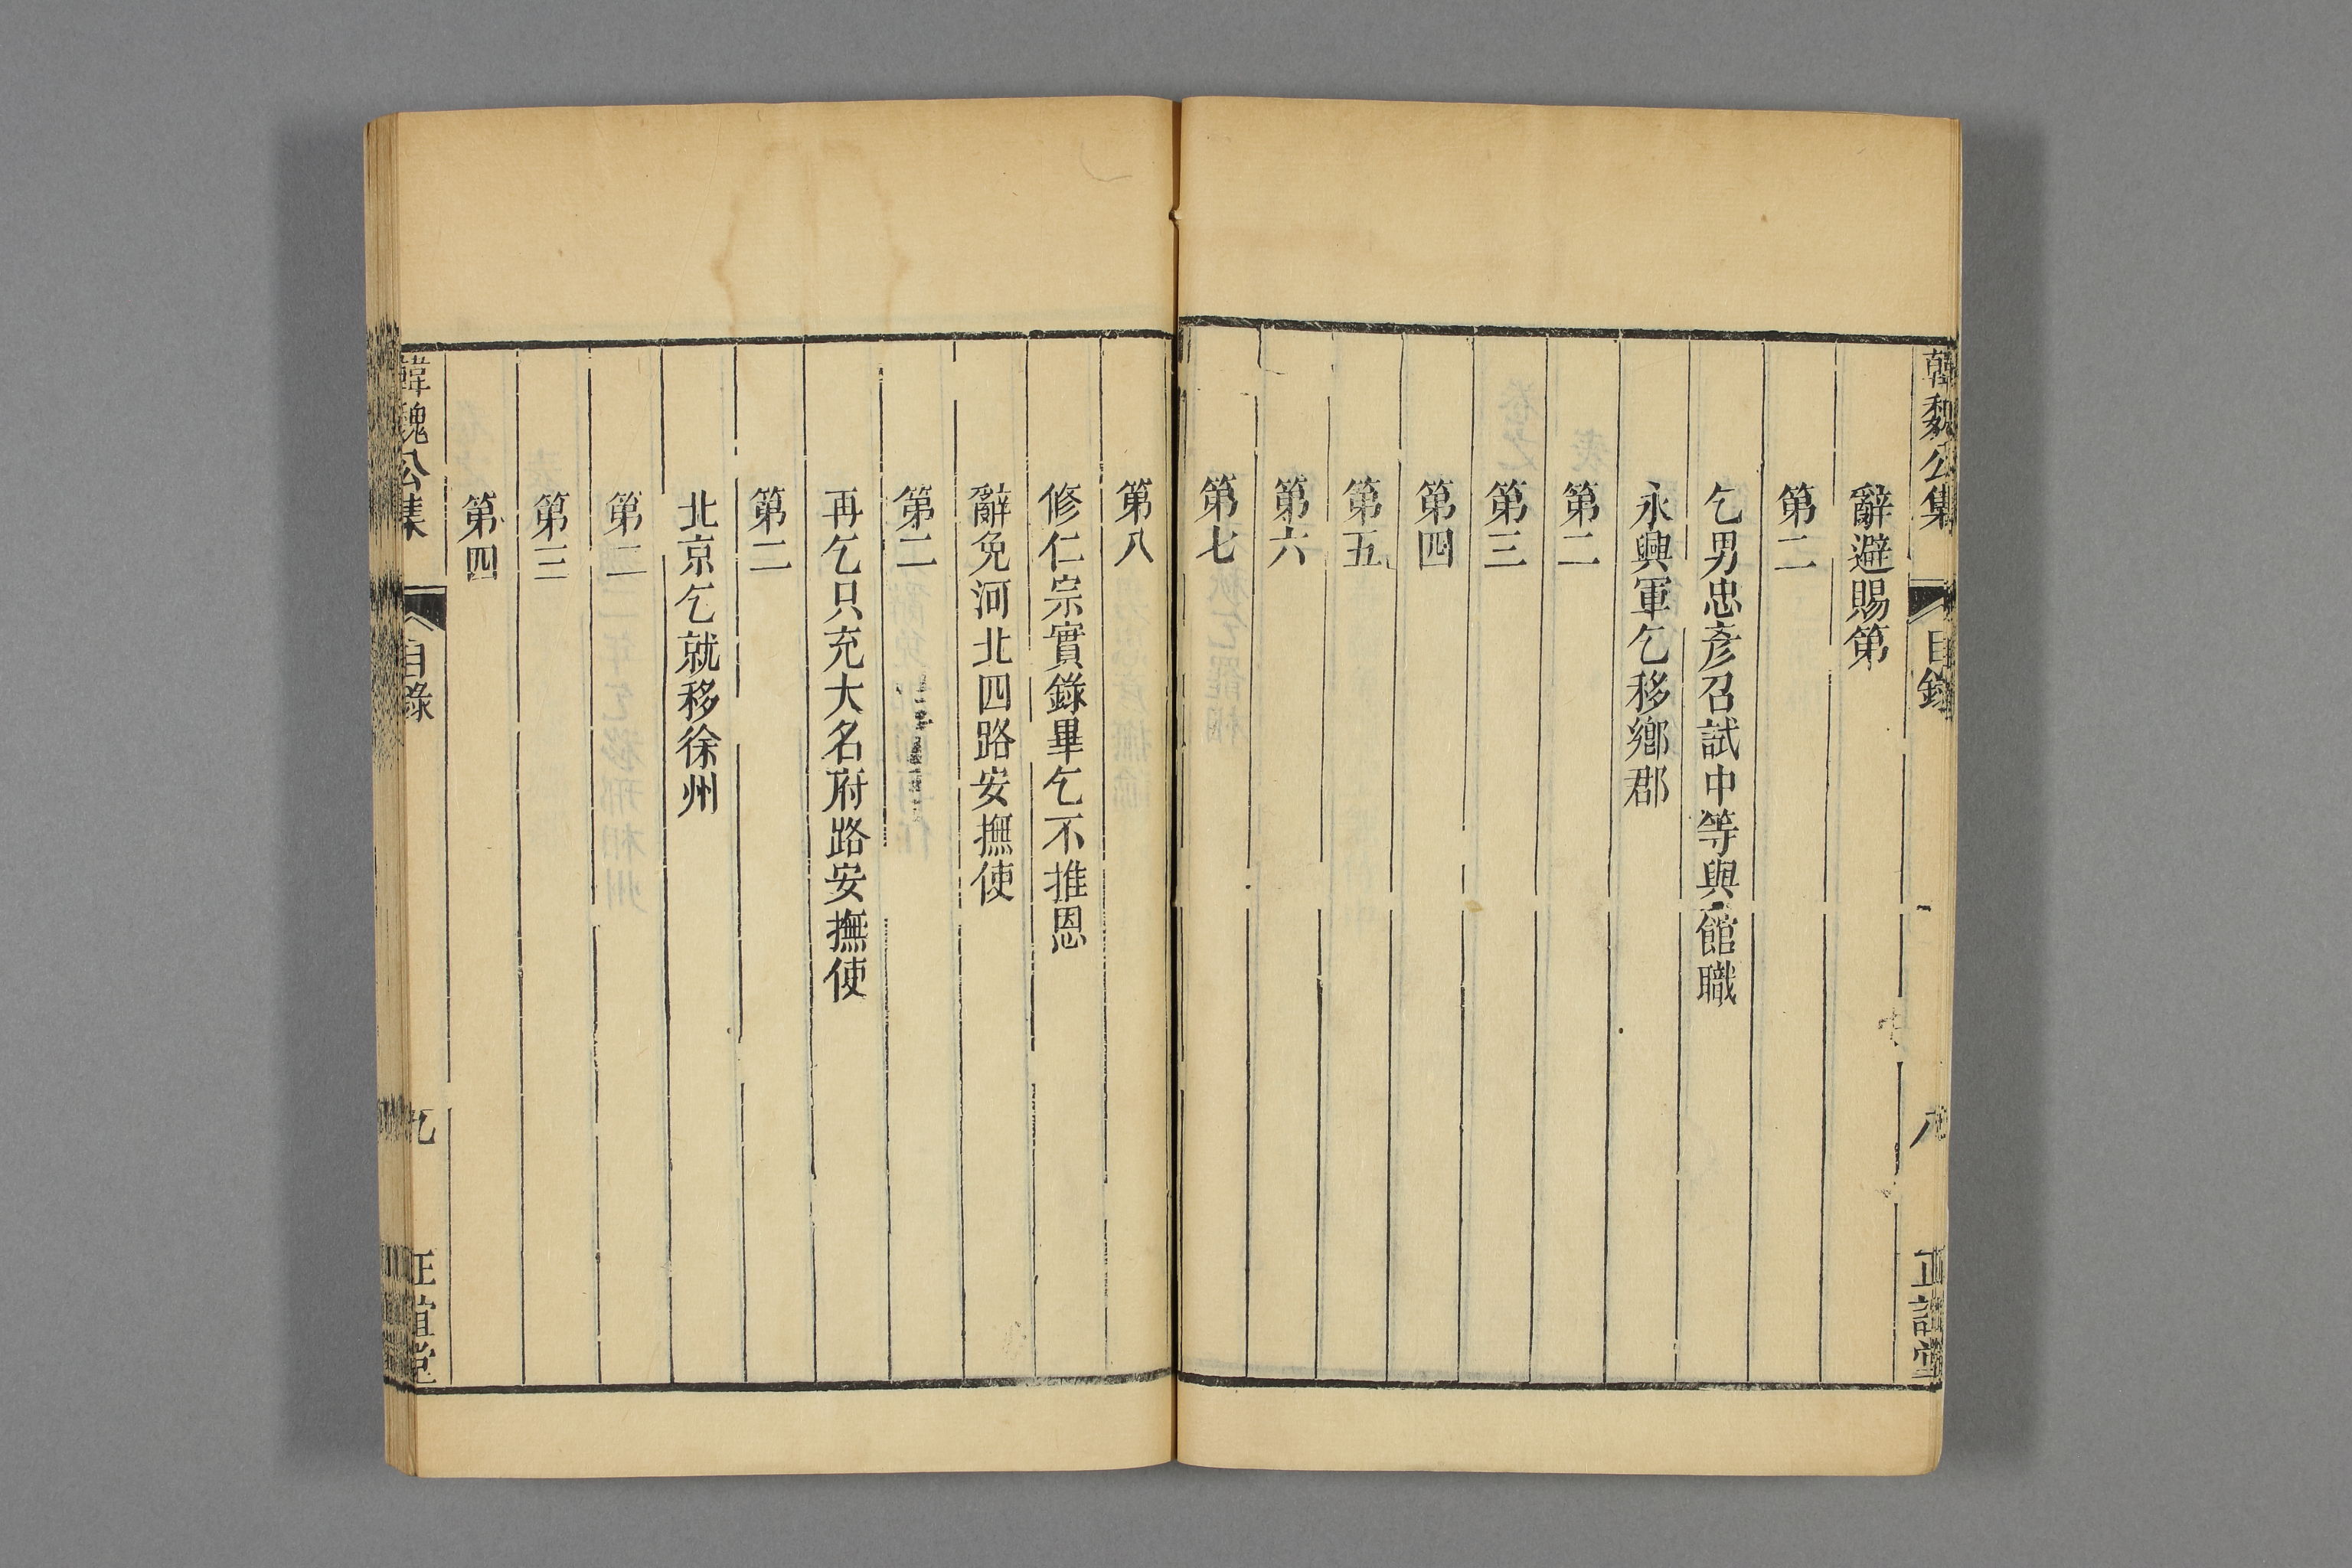 韓魏公集
目錄
八
正誼堂
辭避賜第
第二
乞男忠彥召試中等與館職
永興軍乞移鄉郡
第二
第三
第四
第五
第六
第七
第八
修仁宗實錄畢乞不推恩
辭免河北四路安撫使
第二
再乞只充大名府路安撫使
第二
北京乞就移徐州
第二
第三
第四
韓魏公集
目錄
九
正誼堂